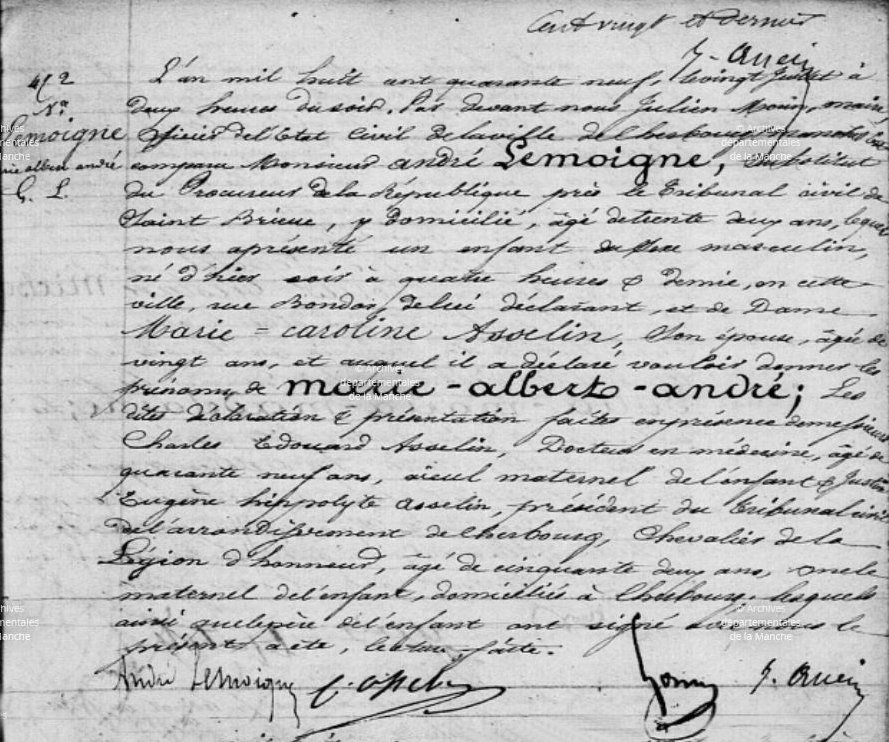 Cent vingt et dernier
452
Nce
Lemoigne
marie albert andré
G. L.
L'an mil huit cent quarante neuf, le vingt Juillet à
deux heures du soir. Par devant nous Julien maire,
officier de l'Etat Civil de la ville de Cherbourg,
comparu Monsieur andré Lemoigne, Substitut
du Procureur de la République près le Tribunal civil de
Saint Brieuc, y domicilié, âgé de trente deux ans, lequel
nous a présenté un enfant du sexe masculin,
né d'hier soir à quatre heures & demie, en cette
ville, rue Bondor, de lui déclarant, et de Dame
Marie = caroline Asselin, Son épouse, âgée de
vingt ans, et auquel il a déclaré vouloir donner les
prénoms de marie - albert - andré; Les
dites déclaration & présentation faites en présence de messieurs
Charles Edouard Asselin, Docteur en médecine, âgé de
quarante neuf ans, aïeul maternel de l'enfant & Justin
Eugène hippolyte asselin, président du tribunal civil
de l'arrondissement de Cherbourg, Chevalier de la
Légion d'honneur, âgé de cinquante deux ans, oncle
maternel de l'enfant, domiciliés à Cherbourg, lesquels
ainsi que le père de l'enfant ont signé avec nous le
présent acte, lecture faite.
André Lemoigne
© Archives
départementales
de la Manche